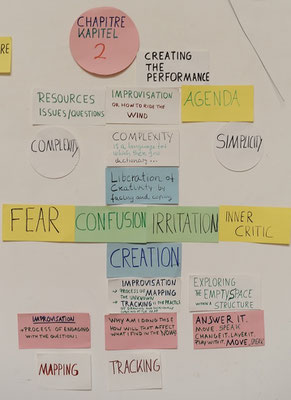 CHAPITRE
KAPITEL
2
CREATING
THE
PERFORMANCE
RE
RESOURCES
ISSUES/QUESTIONS
IMPROVISATION
OR HOW TO RIDE THE
WIND
AGENDA
COMPLEXITY
COMPLEXITY
is a language for
which there is no
dictionary...
SIMPLICITY
Liberation of
Creativity by
facing and coping
FEAR
CONFUSION
IRRITATION
INNER
CRITIC
CREATION
IMPROVISATION
→ PROCESS OF MAPPING
THE UNKNOWN
→ TRACKING
EXPLORING
THE EMPTY SPACE
WITHIN A
STRUCTURE
IMPROVISATION
→ PROCESS OF ENGAGING
WITH THE QUESTION:
WHY AM I DOING THIS
HOW WILL THAT AFFECT
WHAT I FIND IN THE NOW?
ANSWER IT.
MOVE. SPEAK
CHANGE IT. LAYER IT.
PLAY WITH IT. MOVE, SPEAK
MAPPING
TRACKING